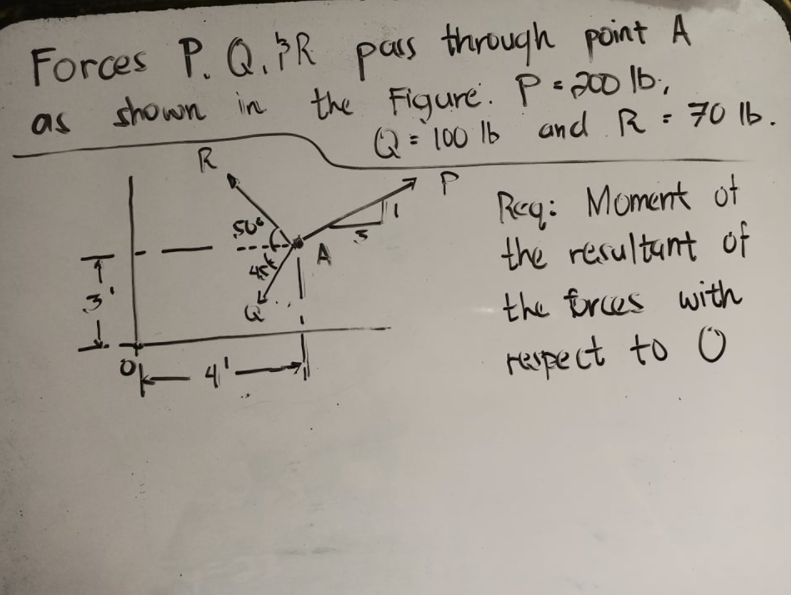 Forces P, Q, & R pass through point A
as shown in the Figure. P = 200 lb,
Q = 100 lb and R = 70 lb.
R
P
1
5
50°
A
45°
Q
3'
O
4'
Req: Moment of
the resultant of
the forces with
respect to O